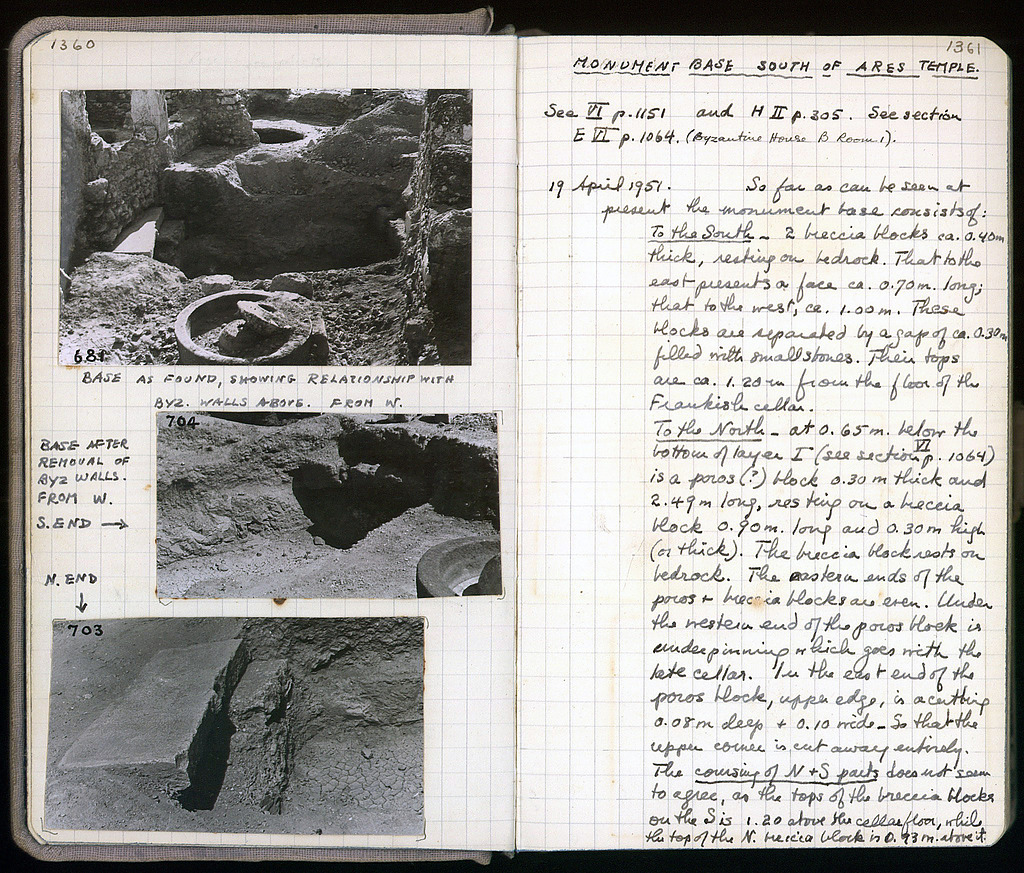 1360
681
BASE AS FOUND, SHOWING RELATIONSHIP WITH
BYZ. WALLS ABOVE. FROM W.
704
BASE AFTER
REMOVAL OF
BYZ WALLS.
FROM W.
S. END →
N. END
↓
703
1361
MONUMENT BASE SOUTH OF ARES TEMPLE.
See VI p.1151 and H II p.305. See section
E VI p.1064. (Byzantine House B Room 1).
19 April 1951. So far as can be seen at
present the monument base consists of:
To the South - 2 breccia blocks ca. 0.40m
thick, resting on bedrock. That to the
east presents a face ca. 0.70m. long;
that to the west, ca. 1.00 m. These
blocks are separated by a gap of ca. 0.30m
filled with small stones. Their tops
are ca. 1.20 m from the floor of the
Frankish cellar.
To the North - at 0.65 m. below the
bottom of layer I (see section VI p. 1064)
is a poros (?) block 0.30 m thick and
2.49 m long, resting on a breccia
block 0.90m. long and 0.30m high
(or thick). The breccia block rests on
bedrock. The eastern ends of the
poros + breccia blocks are even. Under
the western end of the poros block is
underpinning which goes with the
late cellar. In the east end of the
poros block, upper edge, is a cutting
0.08m deep + 0.10 wide - so that the
upper corner is cut away entirely.
The coursing of N + S parts does not seem
to agree, as the tops of the breccia blocks
on the S is 1.20 above the cellar floor, while
the top of the N. breccia block is 0.93 m. above it.